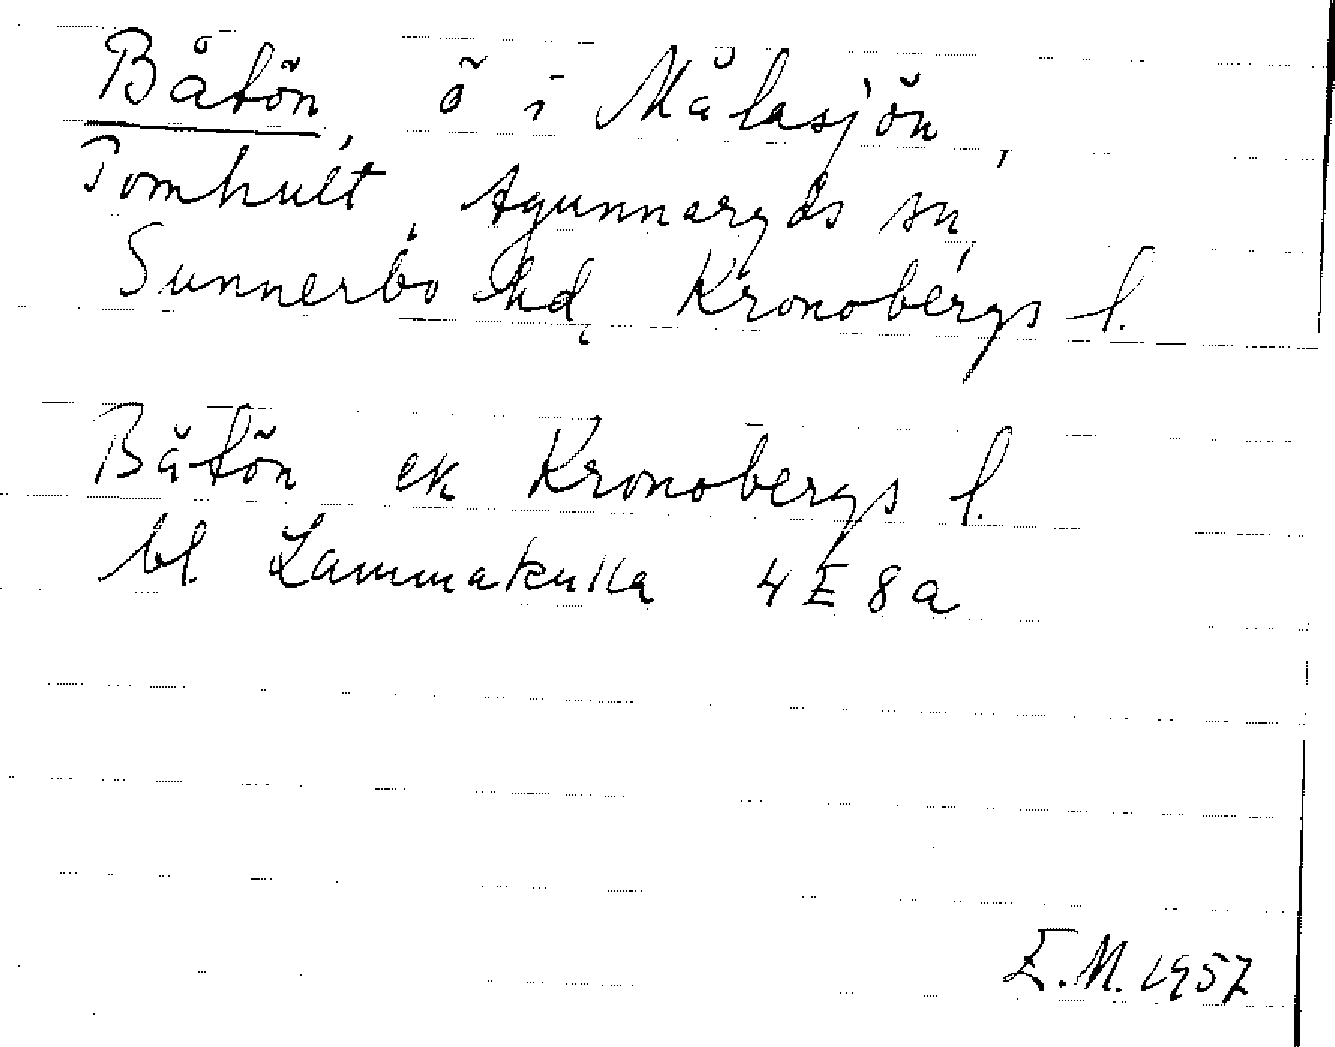 Båtön, ö i Målasjön,
Tomhult, Agunnaryds sn,
Sunnerbo hd, Kronobergs l.
Båtön ek Kronobergs l.
bl. Lammakulla 4E8a
E.M. 1957